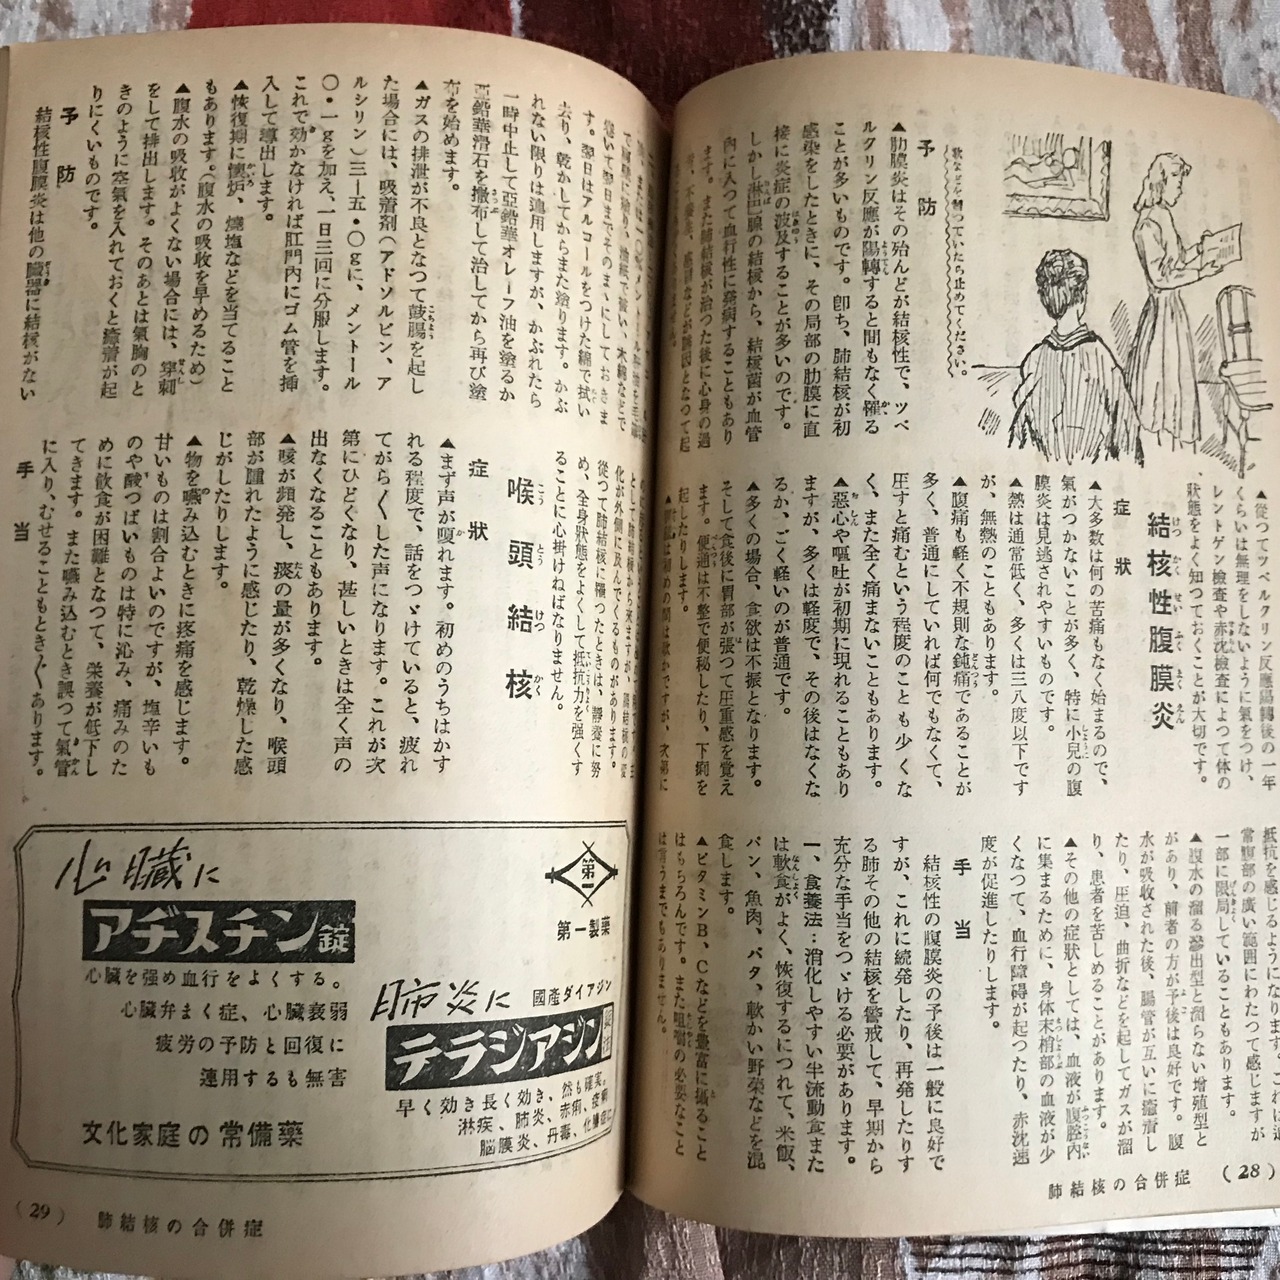 歌などを習つていたら止めてください。
予防
▲肋膜炎はその殆んどが結核性で、ツベ
ルクリン反應が陽轉すると間もなく罹る
ことが多いものです。卽ち、肺結核が初
感染をしたときに、その局部の肋膜に直
接に炎症の波及することが多いのです。
しかし淋巴腺の結核から、結核菌が血管
內に入つて血行性に發病することもあり
ます。また肺結核が治つた後に心身の過
▲從つてツベルクリン反應陽轉後の一年
くらいは無理をしないように氣をつけ、
レントゲン檢査や赤沈檢査によつて体の
狀態をよく知つておくことが大切です。
結核性腹膜炎
症狀
▲大多數は何の苦痛もなく始まるので、
氣がつかないことが多く、特に小兒の腹
膜炎は見逃されやすいものです。
▲熱は通常低く、多くは三八度以下です
が、無熱のこともあります。
▲腹痛も輕く不規則な鈍痛であることが
多く、普通にしていれば何でもなくて、
圧すと痛むという程度のことも少くな
く、また全く痛まないこともあります。
▲惡心や嘔吐が初期に現れることもあり
ますが、多くは輕度で、その後はなくな
るか、ごく輕いのが普通です。
▲多くの場合、食欲は不振となります。
そして食後に胃部が張つて圧重感を覚え
ます。便通は不整で便秘したり、下痢を
起したりします。
抵抗を感じるようになります。これは通
常腹部の廣い範囲にわたつて感じますが
一部に限局していることもあります。
▲腹水の溜る滲出型と溜らない増殖型と
があり、前者の方が予後は良好です。腹
水が吸收された後、腸管が互いに癒着し
たり、圧迫、曲折などを起してガスが溜
り、患者を苦しめることがあります。
▲その他の症狀としては、血液が腹腔內
に集まるために、身体末梢部の血液が少
くなつて、血行障碍が起つたり、赤沈速
度が促進したりします。
手当
結核性の腹膜炎の予後は一般に良好で
すが、これに続発したり、再発したりす
る肺その他の結核を警戒して、早期から
充分な手当をつゞける必要があります。
一、食養法：消化しやすい半流動食また
は軟食がよく、恢復するにつれて、米飯、
パン、魚肉、バタ、軟かい野菜などを混
食します。
▲ビタミンB、Cなどを豊富に攝ること
はもちろんです。また咀嚼の必要なこと
は言うまでもありません。
肺結核の合併症 (28)
て翌日までそのまゝにしておきま
す。翌日はアルコールをつけた綿で拭い
去り、乾かしてからまた塗ります。かぶ
れない限りは連用しますが、かぶれたら
一時中止して亞鉛華オレーフ油を塗るか
亞鉛華滑石を撒布して治してから再び塗
布を始めます。
▲ガスの排泄が不良となつて鼓腸を起し
た場合には、吸着剤（アドソルビン、ア
ルシリン）三―五・〇gに、メントール
〇・一gを加え、一日三回に分服します。
これで効かなければ肛門內にゴム管を挿
入して導出します。
▲恢復期に懐炉、熾塩などを當てること
もあります。（腹水の吸收を早めるため）
▲腹水の吸收がよくない場合には、穿刺
をして排出します。そのあとは氣胸のと
きのように空氣を入れておくと癒着が起
りにくいものです。
予防
結核性腹膜炎は他の臓器に結核がない
化が外側に及んでくるものがあります。
從つて肺結核に罹つたときは、靜養に努
め、全身狀態をよくして抵抗力を強くす
ることに心掛けねばなりません。
喉頭結核
症狀
▲まず声が嗄れます。初めのうちはかす
れる程度で、話をつゞけていると、疲れ
てがら〱した声になります。これが次
第にひどくなり、甚しいときは全く声の
出なくなることもあります。
▲咳が頻発し、痰の量が多くなり、喉頭
部が腫れたように感じたり、乾燥した感
じがしたりします。
▲物を嚥み込むときに疼痛を感じます。
甘いものは割合よいのですが、塩辛いも
のや酸つぱいものは特に沁み、痛みのた
めに飲食が困難となつて、栄養が低下し
てきます。また嚥み込むとき誤つて氣管
に入り、むせることもとき〲あります。
手当
第一
第一製藥
心臓に
アヂスチン錠
心臓を強め血行をよくする。
心臓弁まく症、心臓衰弱
疲労の予防と回復に
連用するも無害
肺炎に
國產ダイアジン
テラジアジン
早く効き長く効き、然も確実。
淋疾、肺炎、赤痢、疫痢
脳膜炎、丹毒、化膿症に
文化家庭の常備藥
(29) 肺結核の合併症